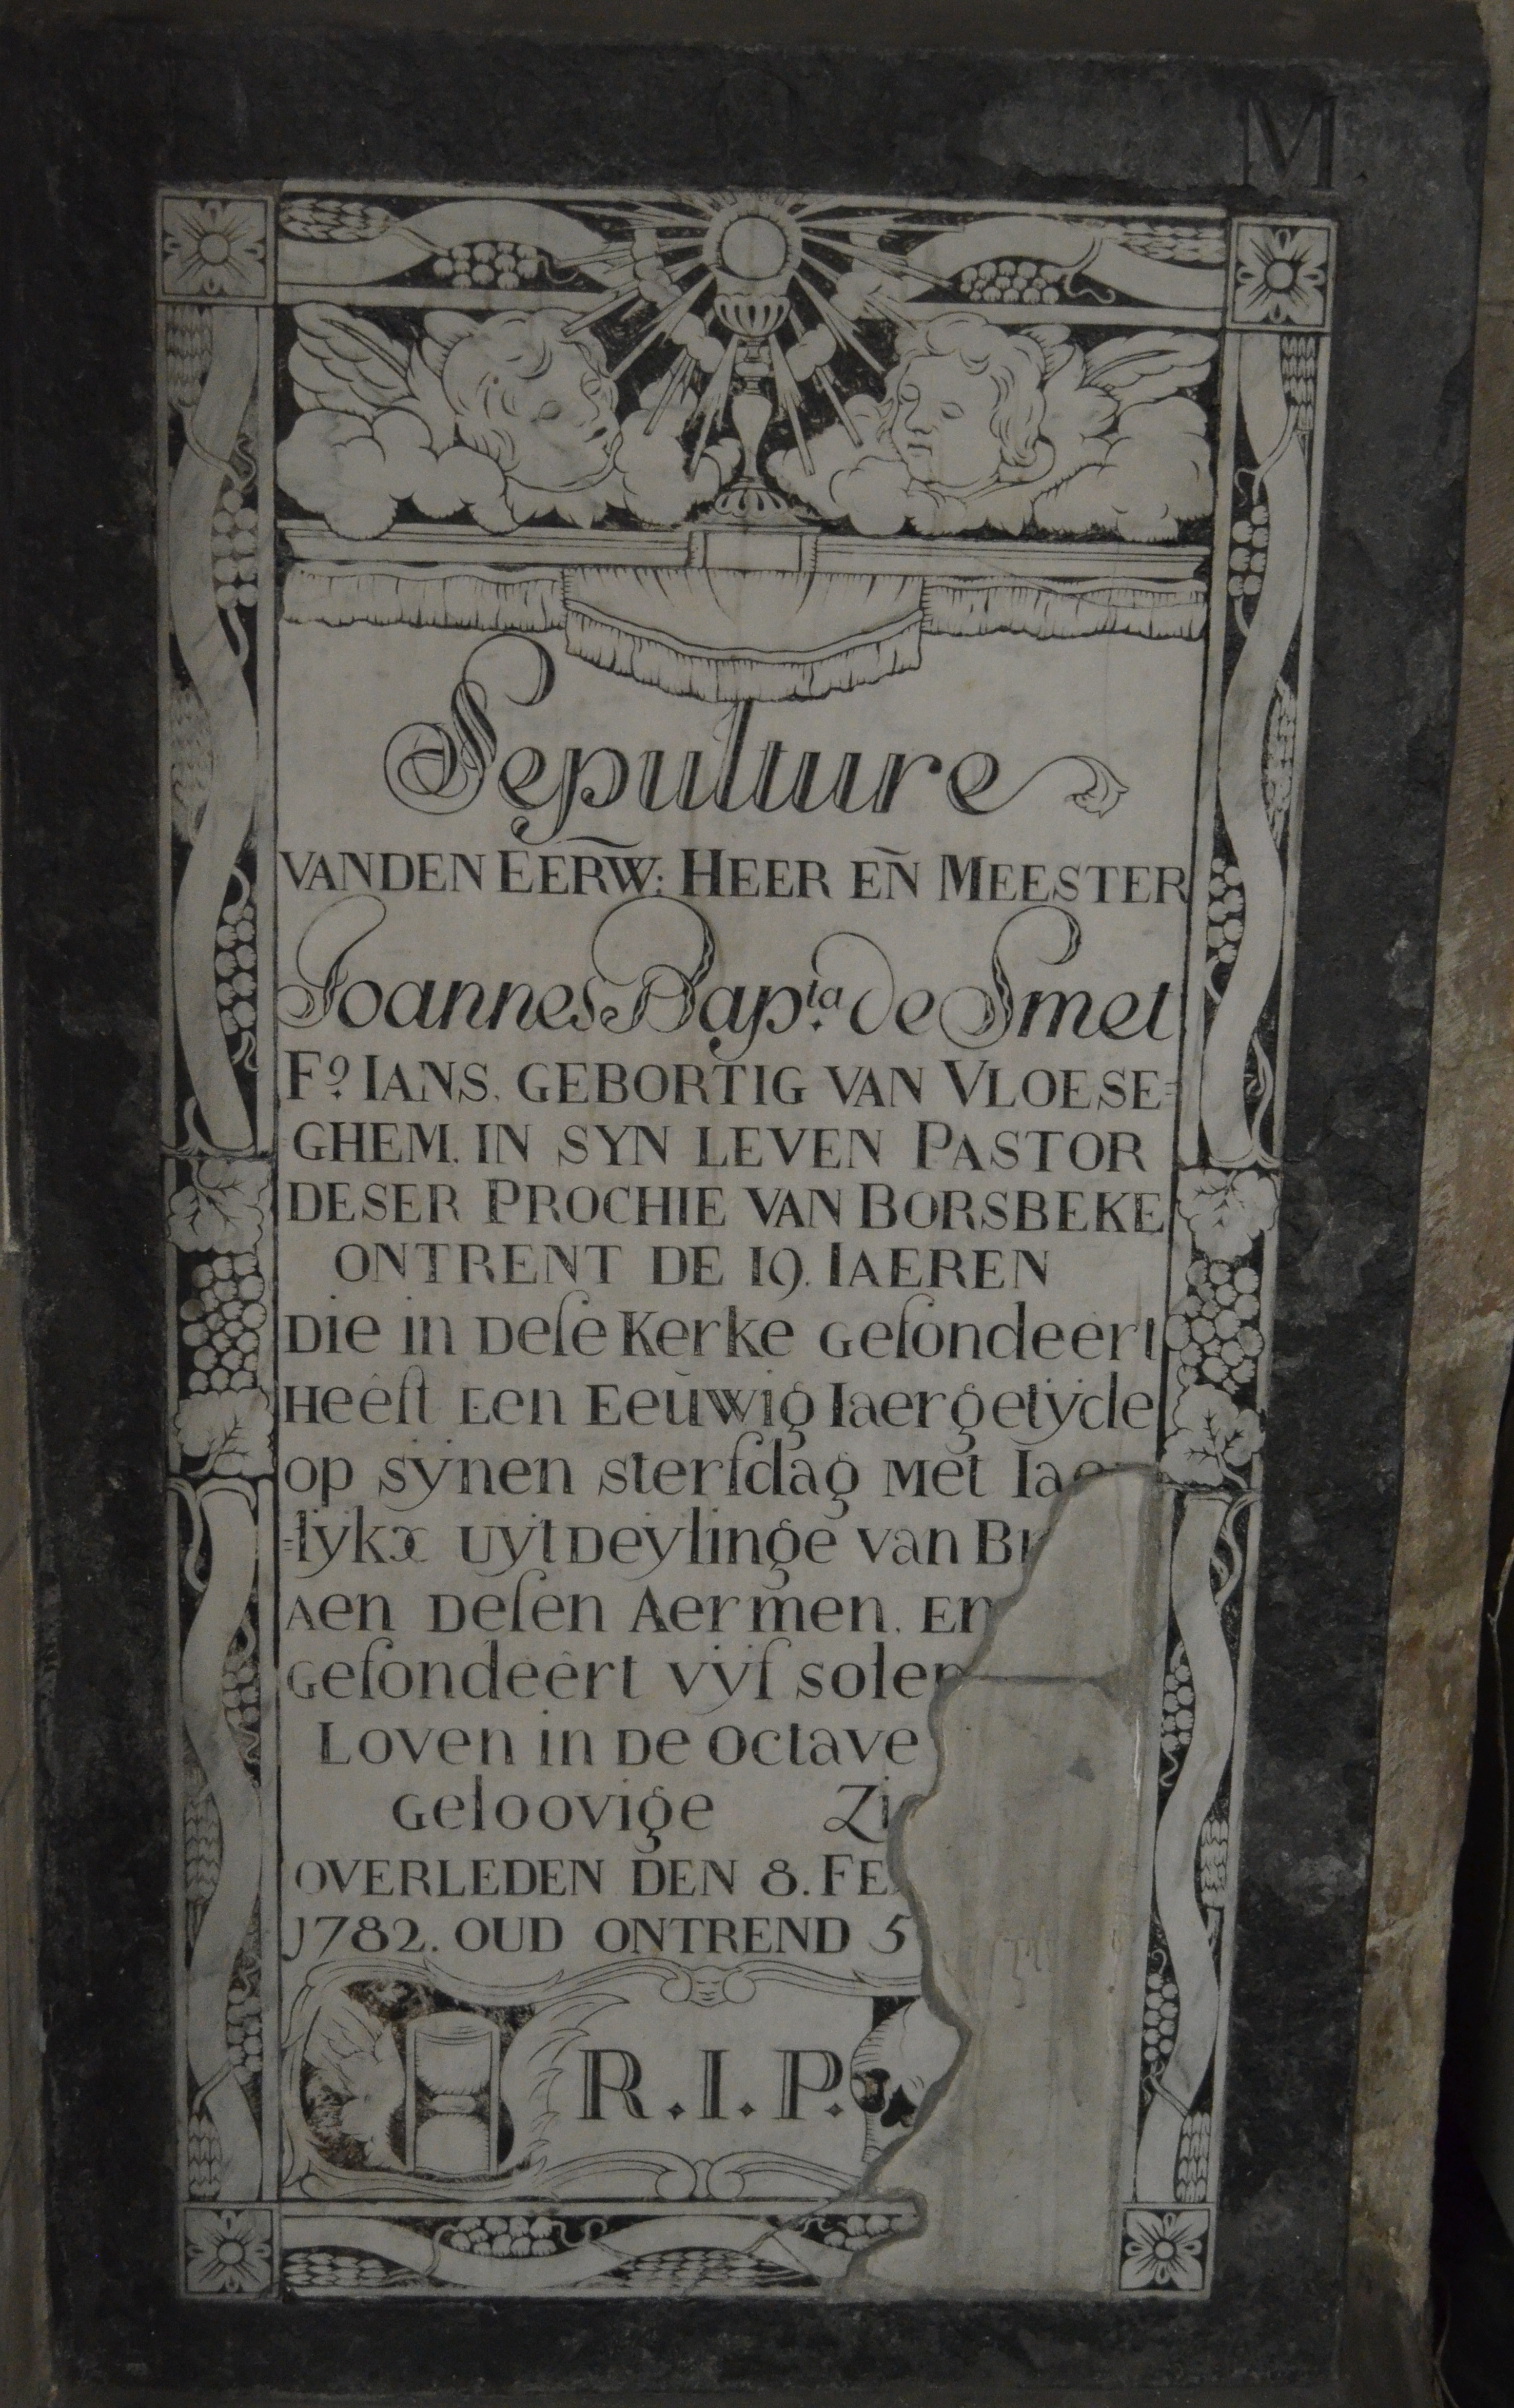 M
Sepulture
VANDEN EERW̃: HEER EÑ MEESTER
Joannes Bap.ta de Smet
Fo. IANS. GEBORTIG VAN VLOESE=
GHEM. IN SYN LEVEN PASTOR
DESER PROCHIE VAN BORSBEKE
ONTRENT DE 19. IAEREN
Die in Dese Kerke Gefondeert
Heeft Een Eeuwig Iaergetyde
op synen sterfdag Met
=lykx uytDeylinge van
Aen Desen Aermen.
Gefondeert vyf
Loven in De Octave
Geloovige
OVERLEDEN DEN 8.
1782. OUD ONTREND
R.I.P.